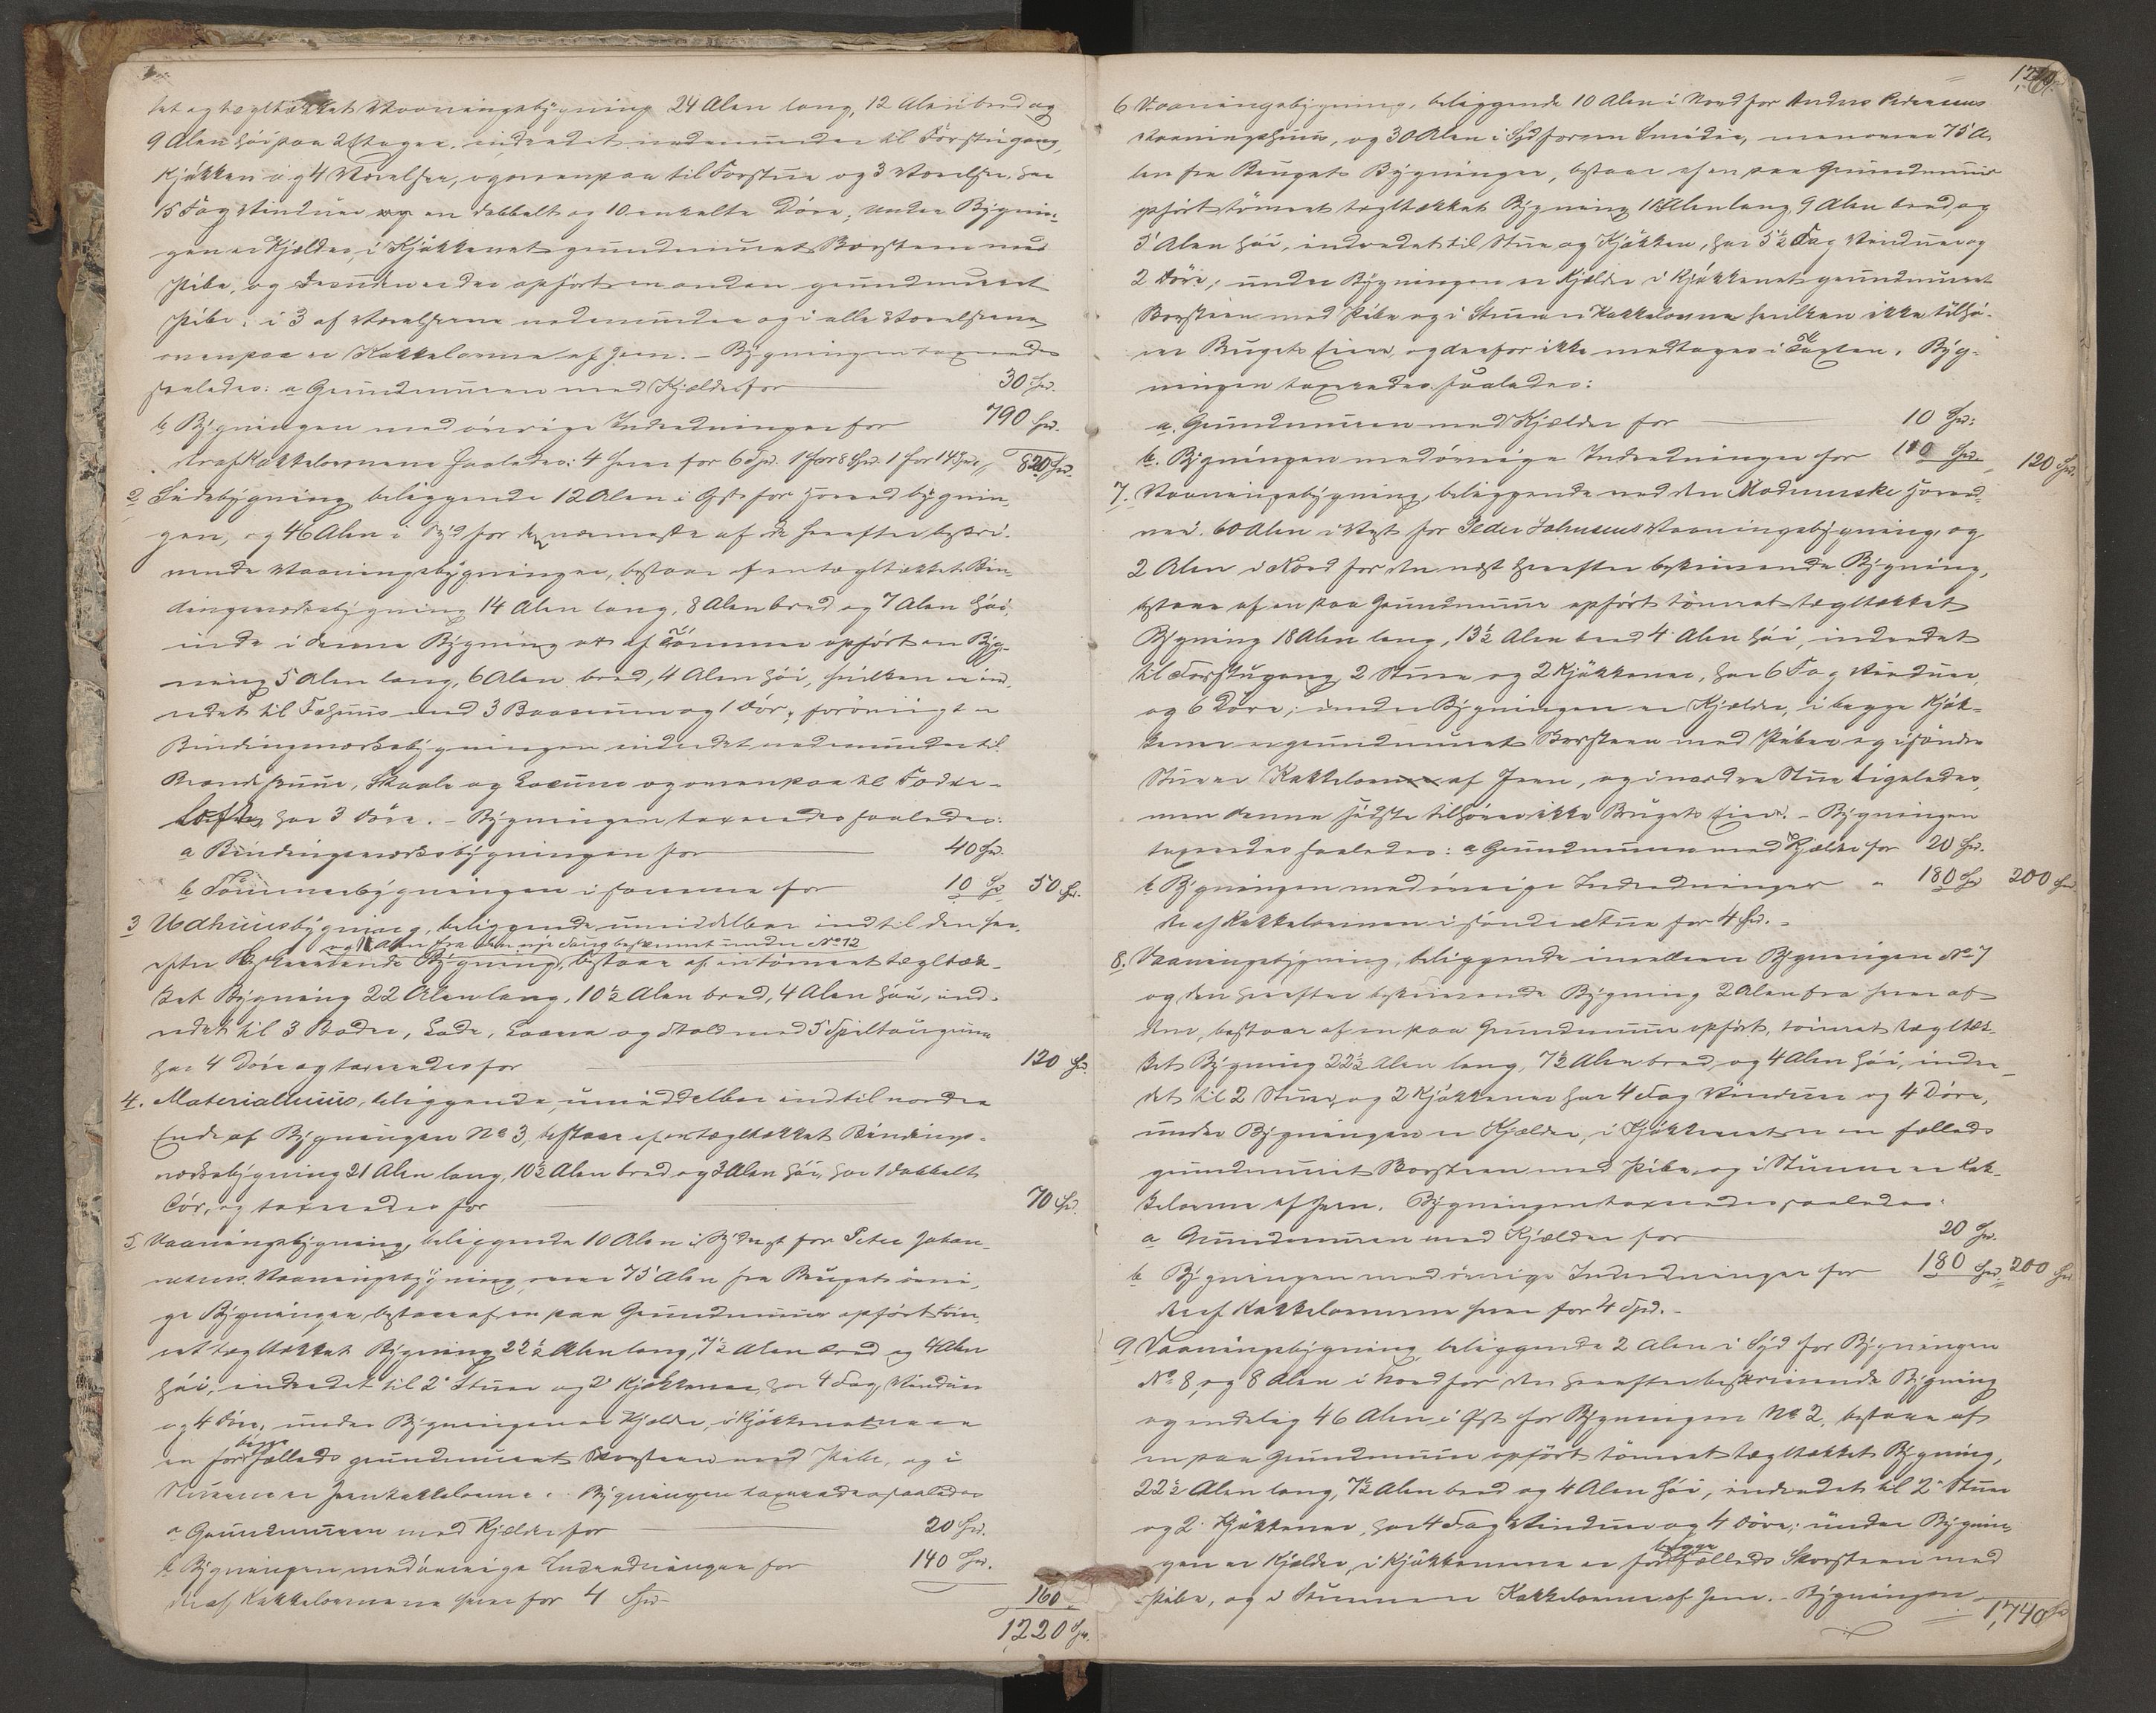 tet og tægltækket Vaaningsbygning 24 Alen lang, 12 Alen bred og
9 Alen høi paa 2 Etager, indredet nedenunder til Forstugang,
Kjøkken og 4 Værelser, og ovenpaa til Forstue og 3 Værelser, har
15 Fag Vinduer og en dobbelt og 10 enkelte Døre; under Bygnin-
gen er Kjælder, i Kjøkkenet grundmuret Skorsteen med
Pibe, og desuden er der opført en anden grundmuret
Pibe; i 3 af Værelserne nedenunder og i alle Værelserne
ovenpaa er Kakkelovne af Jern. - Bygningen taxeredes
saaledes: a Grundmuren med Kjælder for 30 Spd.
b Bygningen med øvrige Indredninger for 790 Spd.
deraf Kakkelovnene saaledes: 4 hver for 6 Spd. 1 for 8 Spd. 1 for 14 Spd. 820 Spd.
2 Sidebygning, beliggende 12 Alen i Øst for Hovedbygnin-
gen, og 46 Alen i Syd for den nærmeste af de herefter beskri-
vende Vaaningsbygninger, bestaar af en tægltækket Bin-
dingsværksbygning 14 Alen lang, 8 Alen bred og 7 Alen høi,
inde i denne Bygning er af Tømmer opført en Byg-
ning 5 Alen lang, 6 Alen bred, 4 Alen høi, hvilken er ind-
redet til Fæhuus med 3 Baaserum og 1 Dør, forøvrigt er
Bindingsværksbygningen indredet nedenunder til
Brændeskuur, Skaale og Locum og ovenpaa til Foder-
loft, har 3 Døre. - Bygningen taxeredes saaledes:
a Bindingsværksbygningen for 40 Spd.
b Tømmerbygningen i samme for 10 Spd. 50 Spd.
3 Udhuusbygning, beliggende umiddelbar indtil den her-
og 11 Alen fra den nye Bygning beskrevet under No 12
efter beskrevende Bygning, bestaar af en tømret tægltæk-
ket Bygning 22 Alen lang, 10½ Alen bred, 4 Alen høi, ind-
redet til 3 Boder, Lade, Laave og Stald med 5 Spiltougrum
har 4 Døre og taxeredes for 120 Spd.
4. Materialhuus, beliggende umiddelbar indtil nordre
Ende af Bygningen No 3, bestaar af en tægltækket Bindings-
værksbygning 21 Alen lang, 10½ Alen bred og 3 Alen høi, har 1 dobbelt
Dør, og taxeredes for 70 Spd.
5. Vaaningsbygning, beliggende 10 Alen i Sydvest for Peter Johan-
nesens Vaaningsbygning, over 75 Alen fra Brugets øvri-
ge Bygninger, bestaar af en paa Grundmuur opført tøm-
ret tægltækket Bygning 22½ Alen lang, 7½ Alen bred og 4 Alen
høi, indredet til 2 Stuer og 2 Kjøkkener, har 4 Fag Vinduer
og 4 Døre, under Bygningen er Kjælder, i Kjøkkenerne er
begge
en for fælleds grundmuret Skorsteen med Pibe, og i
Stuerne er Jernkakkelovne. Bygningen taxeredes saaledes
a Grundmuren med Kjælder for 20 Spd.
b Bygningen med øvrige Indredninger for 140 Spd.
deraf Kakkelovnene hver for 4 Spd. 160
1,220 Spd.
6 Vaaningsbygning, beliggende 10 Alen i Nord for Anders Pedersens
Vaaningshuus, og 30 Alen i Syd for en Smidie, men over 75 A-
len fra Brugets Bygninger, bestaar af en paa Grundmuur
opført tømret tægltækket Bygning 11 Alen lang, 9 Alen bred, og
5 Alen høi, indredet til Stue og Kjøkken, har 5½ Fag Vinduer og
2 Døre; under Bygningen er Kjælder i Kjøkkenet grundmuret
Skorsteen med Pibe og i Stuen er Kakkelovne hvilken ikke tilhø-
rer Brugets Eier, og derfor ikke medtages i Taxten. Byg-
ningen taxeredes saaledes:
a. Grundmuren med Kjælder for 10 Spd.
b. Bygningen med øvrige Indredninger for 110 Spd. 120 Spd.
7. Vaaningsbygning, beliggende ved den Modumske Hoved-
vei, 60 Alen i Vest for Peder Johnsens Vaaningsbygning, og
2 Alen i Nord for den næst herefter beskrivende Bygning,
bestaar af en paa Grundmuur opført tømret tægltækket
Bygning 18 Alen lang, 13½ Alen bred 4 Alen høi, indredet
til Forstugang 2 Stuer og 2 Kjøkkener, har 6 Fag Vinduer,
og 6 Døre; under Bygningen er Kjælder, i begge Kjøk-
kener er grundmuret Skorsteen med Piber og i søndre
Stue er Kakkelovn af Jern, og i nordre Stue ligeledes,
men denne sidste tilhører ikke Brugets Eier. - Bygningen
taxeredes saaledes: a Grundmuren med Kjælder for 20 Spd.
b Bygningen med øvrige Indredninger " 180 Spd. 200 Spd.
deraf Kakkelovnen i søndre Stue for 4 Spd. -
8. Vaaningsbygning, beliggende imellem Bygningen No 7
og den herefter beskrivende Bygning 2 Alen fra hver af
dem, bestaar af en paa Grundmuur opført, tømret tægltæk-
ket Bygning 22½ Alen lang, 7½ Alen bred, og 4 Alen høi, indre-
det til 2 Stuer, og 2 Kjøkkener har 4 Fag Vinduer og 4 Døre,
under Bygningen er Kjælder, i Kjøkkenerne er en fælleds
grundmuret Skorsteen med Pibe, og i Stuerne er Kak-
kelovne af Jern. Bygningen taxeredes saaledes:
a Grundmuren med Kjælder for 20 Spd.
b Bygningen med øvrige Indredninger for 180 Spd. 200 Spd.
deraf Kakkelovnene hver for 4 Spd. -
9 Vaaningsbygning, beliggende 2 Alen i Syd for Bygningen
No 8, og 8 Alen i Nord for den herefter beskrivende Bygning
og endelig 46 Alen i Øst for Bygningen No 2, bestaar af
en paa Grundmuur opført tømret tægltækket Bygning,
22½ Alen lang, 7½ Alen bred og 4 Alen høi, indredet til 2 Stuer
og 2 Kjøkkener, har 4 Fag Vinduer og 4 Døre; under Bygnin-
begge
gen er Kjælder, i Kjøkkenerne er for fælleds Skorsteen med
Pibe, og i Stuerne Kakkelovne af Jern. - Bygningen
1,740 Spd.